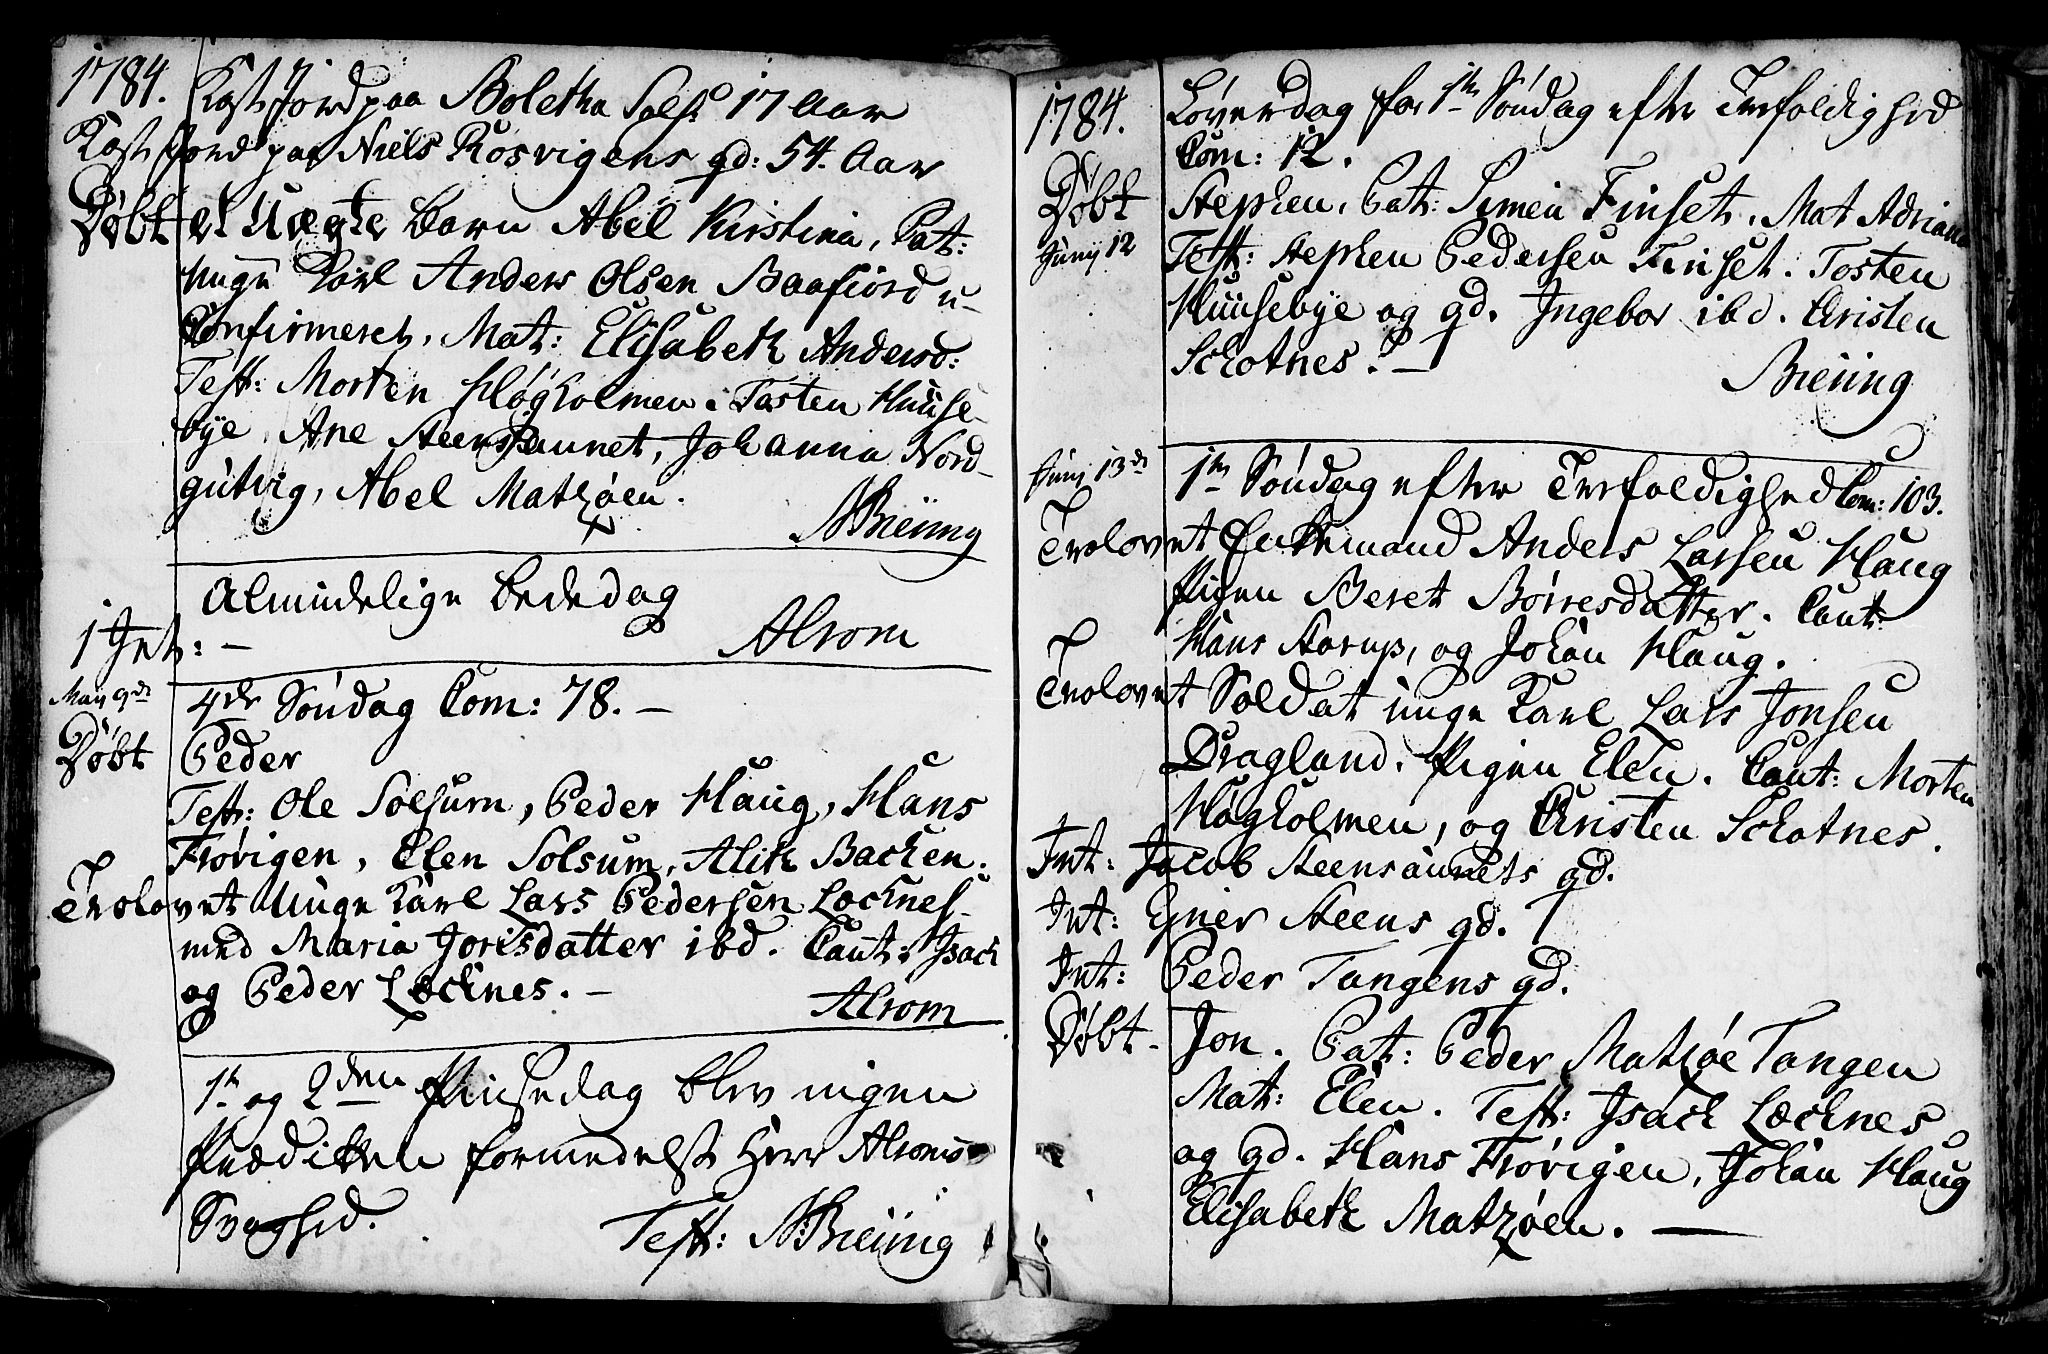 1784. Kast Jord paa Boletha Sols: 17 Aar
Kast Jord paa Niels Rosvigens gd: 54. Aar
Døbt et Uægte barn Abel Kirstina, Pat:
unge Karl Anders Olsen Baafiord u-
Confirmeret, Mat: Elisabeth Andersd:
Test: Morten Høgholmen, Tosten Huuse-
bye, Ane Steensaunet, Johanna Nord-
gutvig, Abel Matzøen.
Breüng
Almindelige bededag
1 Int: -
Alrom
May 9de 4de Søndag Com: 78. -
Døbt Peder
Test: Ole Solsum, Peder Haug, Hans
Frøvigen, Elen Solsum, Alith Backen.
Trolovet Unge Karl Lars Pedersen Locknes
med Maria Jorisdatter ibd. Caut: Isach
og Peder Locknes. -
Alrom
1te og 2den Pinsedag blev ingen
Prædiken formedelst Herr Alroms
Svaghed.
Test: Breüng
1784. Løverdag for 1te Søndag efter Trefoldighed
Com: 12.
Døbt Stephen, Pat: Simen Finset, Mat Adriana
Juny 12 Test: Stephen Pedersen Finset. Tosten
Huusebye og gd. Ingebor ibd. Christen
Schotnes. -
Breüng
Juny 13de 1te Søndag efter Trefoldighed Com: 103.
Trolovet Enkemand Anders Larsen Haug
Pigen Beret Børresdatter. Caut:
Hans Aarup, og Johan Haug.
Trolovet Soldat unge Karl Lars Jonsen
Dragland. Pigen Elen. Caut: Morten
Høgholmen, og Christen Schotnes.
Int: Jacob Steensaunets gd.
Int: Ejner Steens gd.
Int: Peder Tangens gd.
Døbt - Jon. Pat: Peder Matzøe Tangen
Mat: Elen. Test: Isach Locknes
og gd. Hans Frøvigen, Johan Haug
Elisabeth Matzøen. -